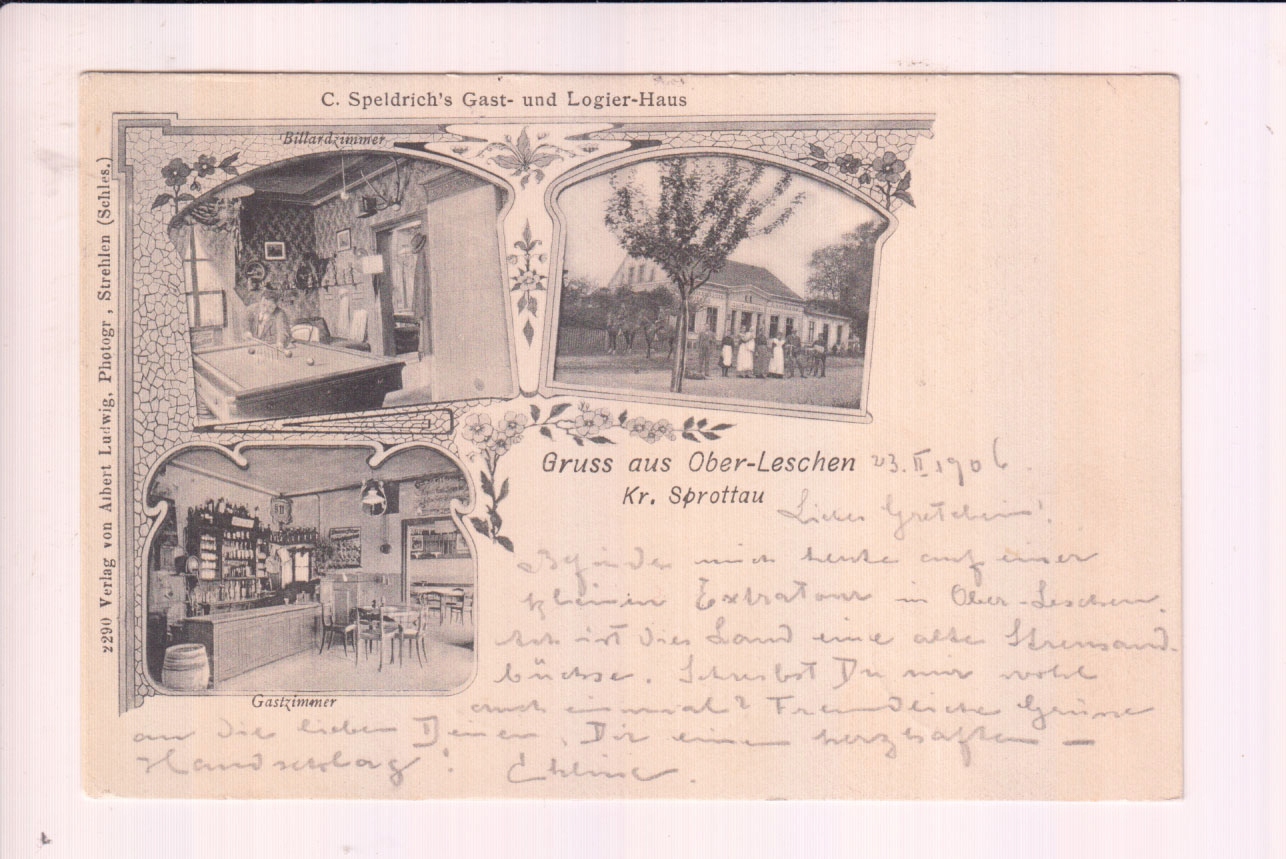 C. Speldrich's Gast- und Logier-Haus
Billardzimmer
2290 Verlag von Albert Ludwig, Photogr., Strehlen (Schles.)
Gastzimmer
Gruss aus Ober-Leschen 23. II 1906.
Kr. Sprottau
Liebes Gretchen!
Befinde mich heute auf einer
kleinen Extratour in Ober-Leschen.
Ach ist dies Land eine alte Streusand-
büchse. Schreibst Du mir wohl
auch einmal? Freundliche Grüsse
an die lieben Deinen, Dir einen herzhaften –
Handschlag!